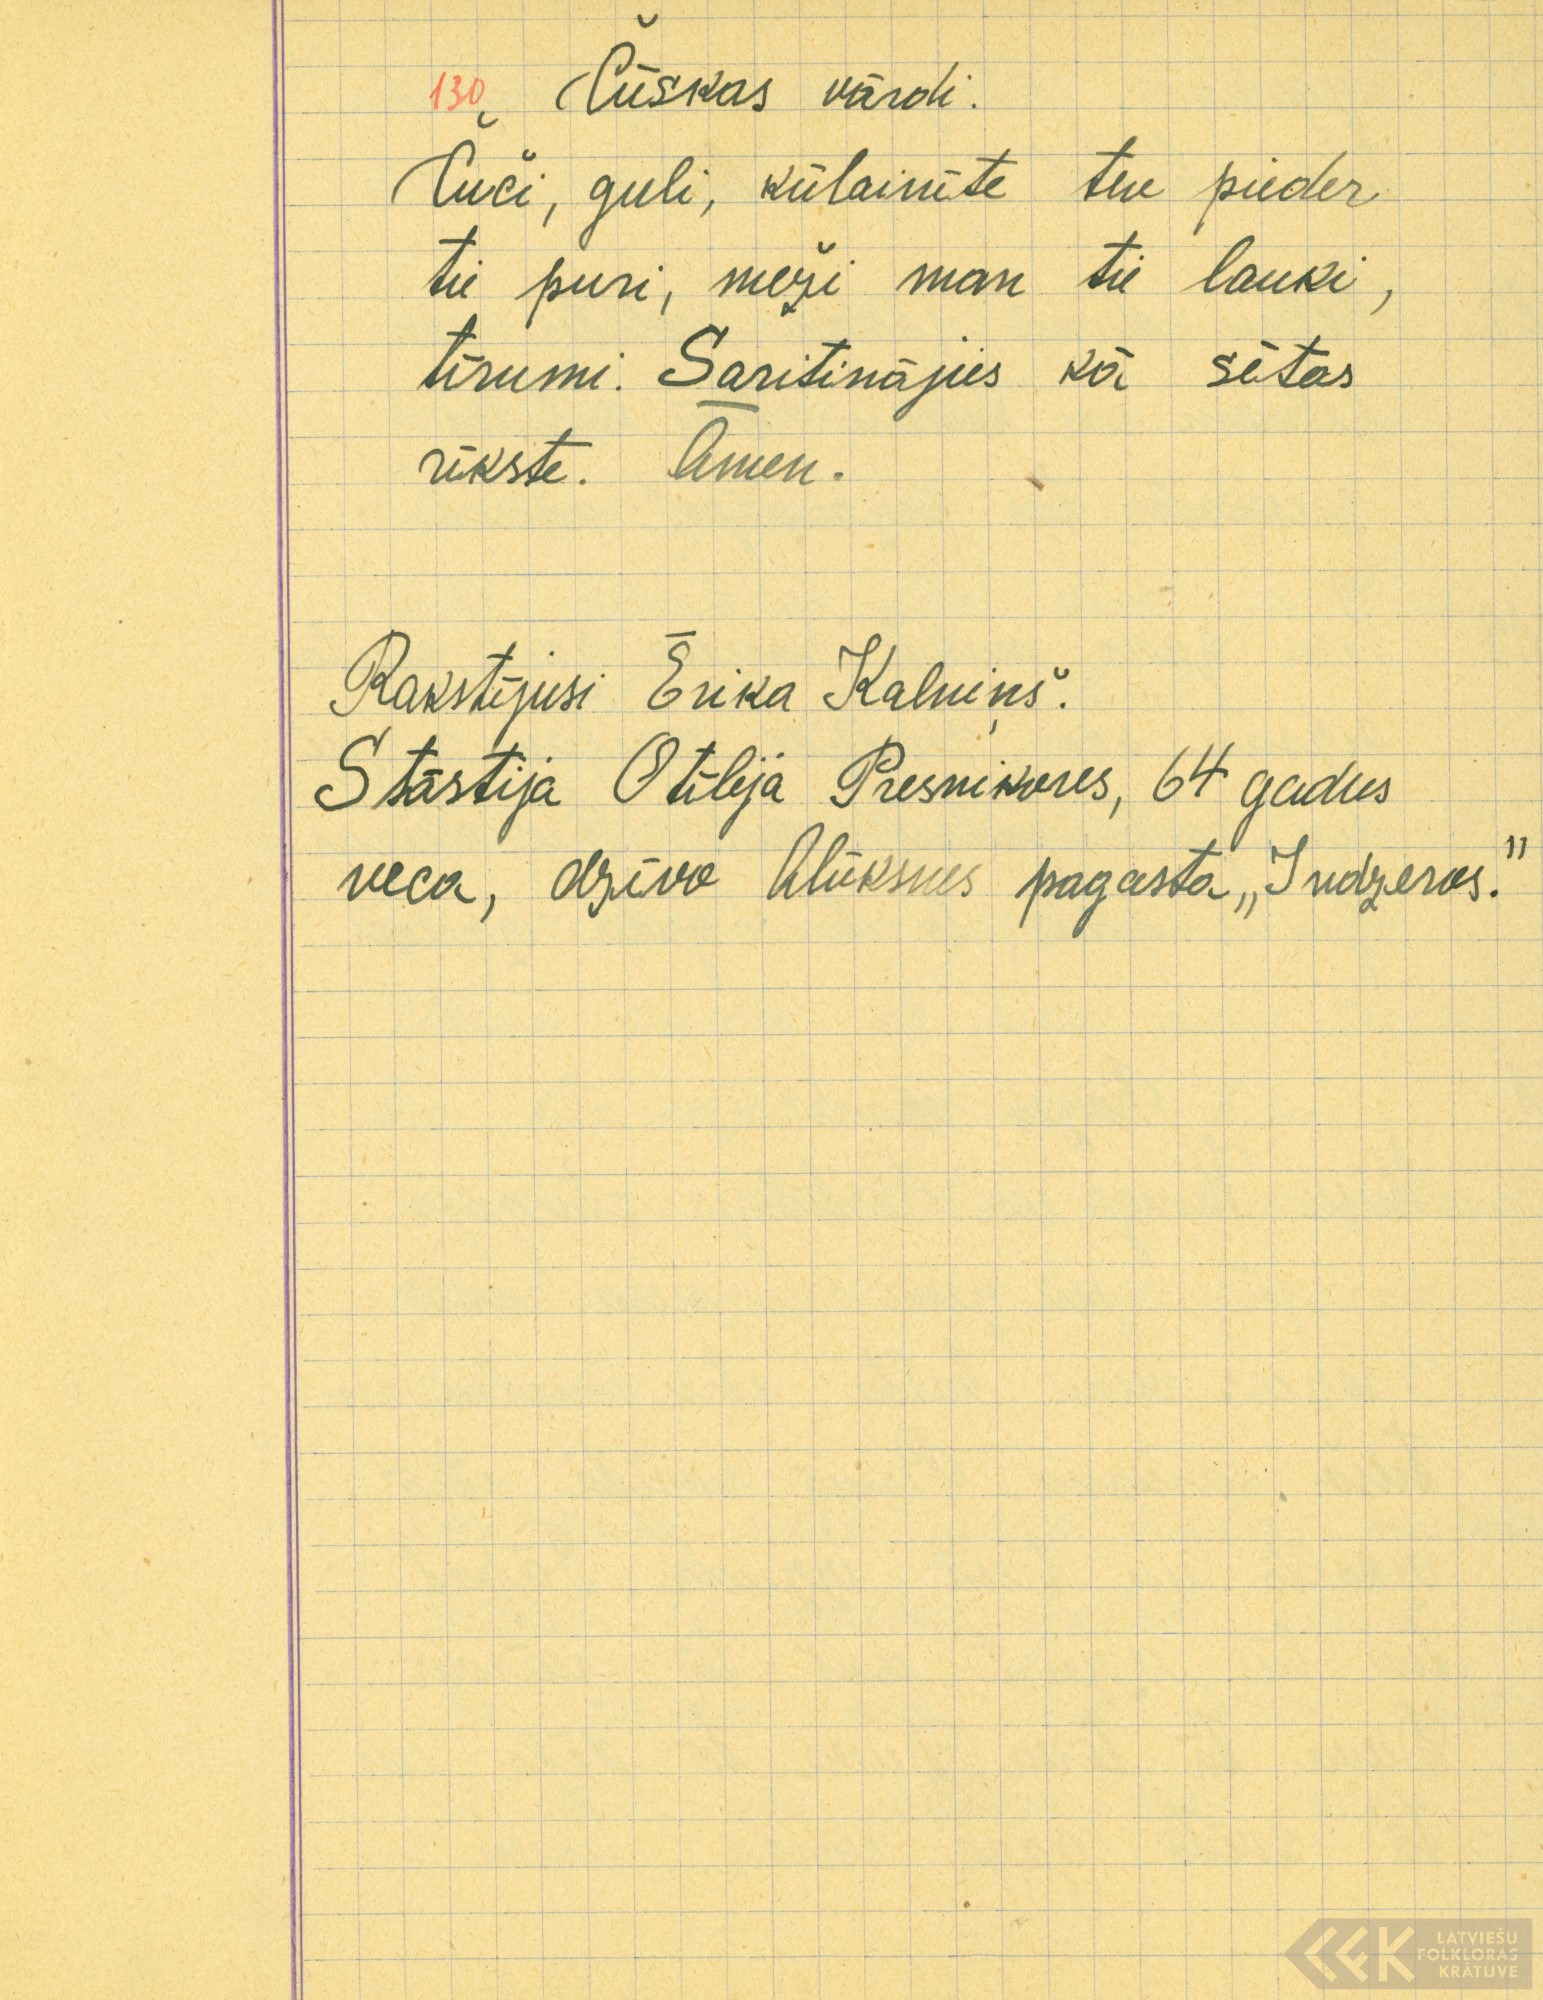 130, Čūskas vārdi.
Čuči, guli, kūlainīte tev pieder
tie puri, meži man tie lauki,
tīrumi. Saritinājies kā sētas
rīkste. Āmen.
Rakstījusi Ērika Kalniņš.
Stāstija Otīlija Presnikores, 64 gadus
veca, dzīvo Alūksnes pagasta „Indzeros."
LATVIEŠU
FOLKLORAS
KRĀTUVE